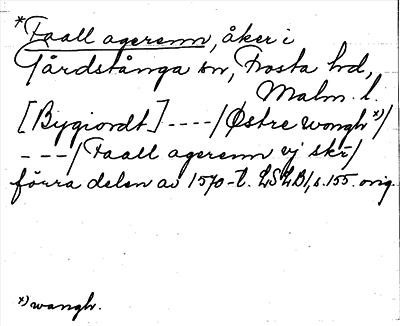 *Faall agerenn, åker i
Gårdstånga sn, Frosta hd,
Malm. l.
[Bygiordt] ----/Østre wongh x)/
---/Faall agerenn vj skr/
förra delen av 1570-t. LSLB1, s. 155. orig.
x) wangh.